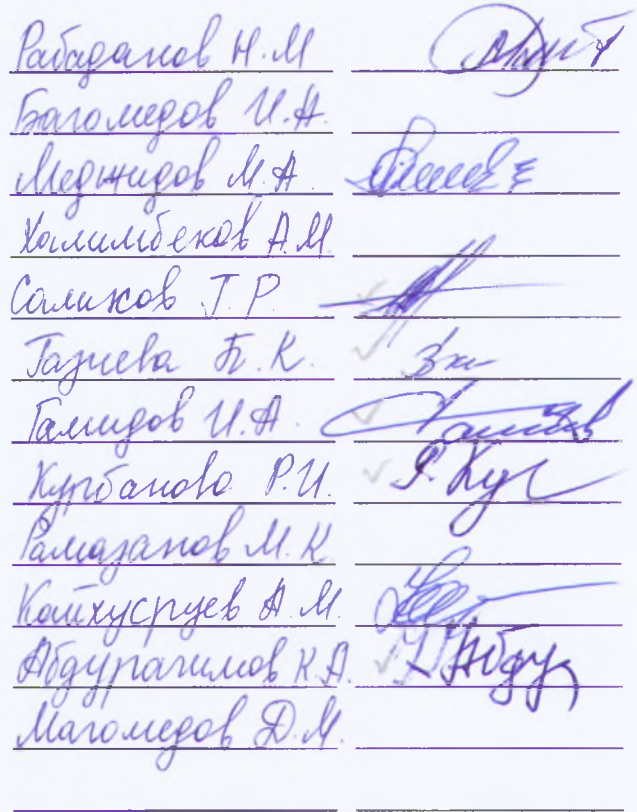 Рабаданов Н.М
Багомедов И.А.
Меджидов М.А.
Халимбеков А.М
Салихов Т.Р.
Газиева Б.К.
Гамидов И.А.
Курбанова Р.И. Р.Кур
Рамазанов М.К
Кайхусруев А.М.
Абдурагимов К.А. Абдур
Магомедов Д.М.